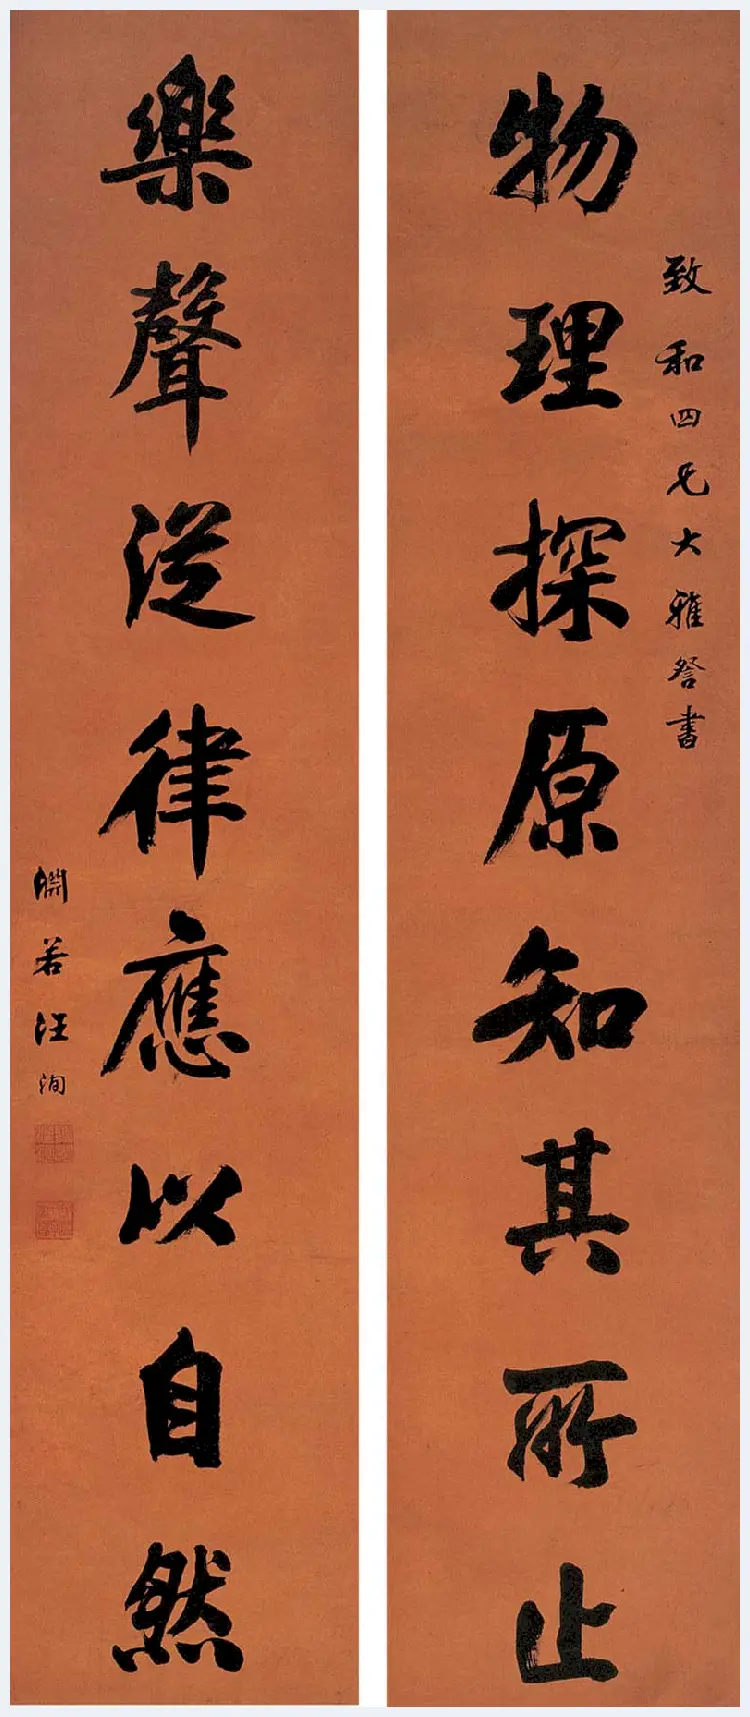 物理探原知其所止
致和四兄大雅詧書
樂聲從律應以自然
淵若汪洵